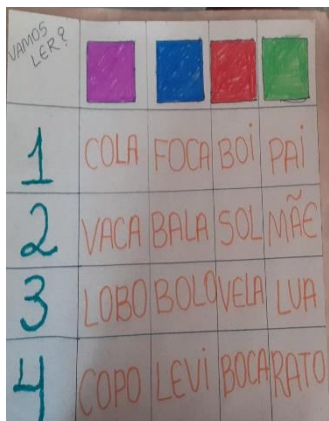 VAMOS
LER?
1 COLA FOCA BOi PAi
2 VACA BALA SOL MÃE
3 LOBO BOLO VELA LUA
4 COPO LEVi BOCA RATO